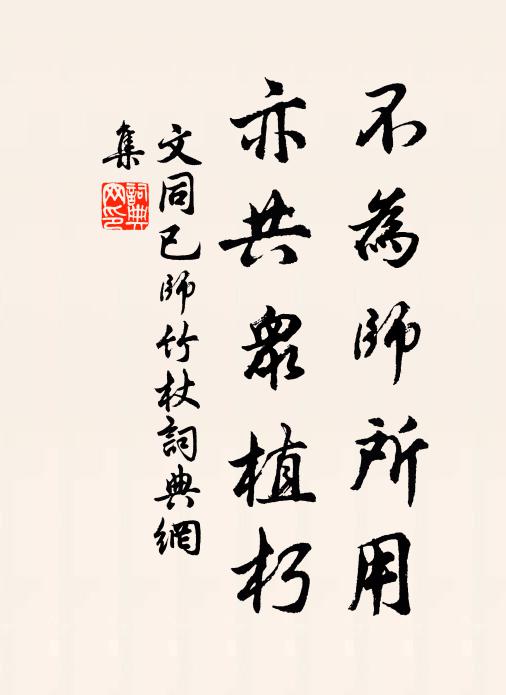 不為師所用
亦共衆植朽
文同已師竹杖詞典網
集
詞典
网印